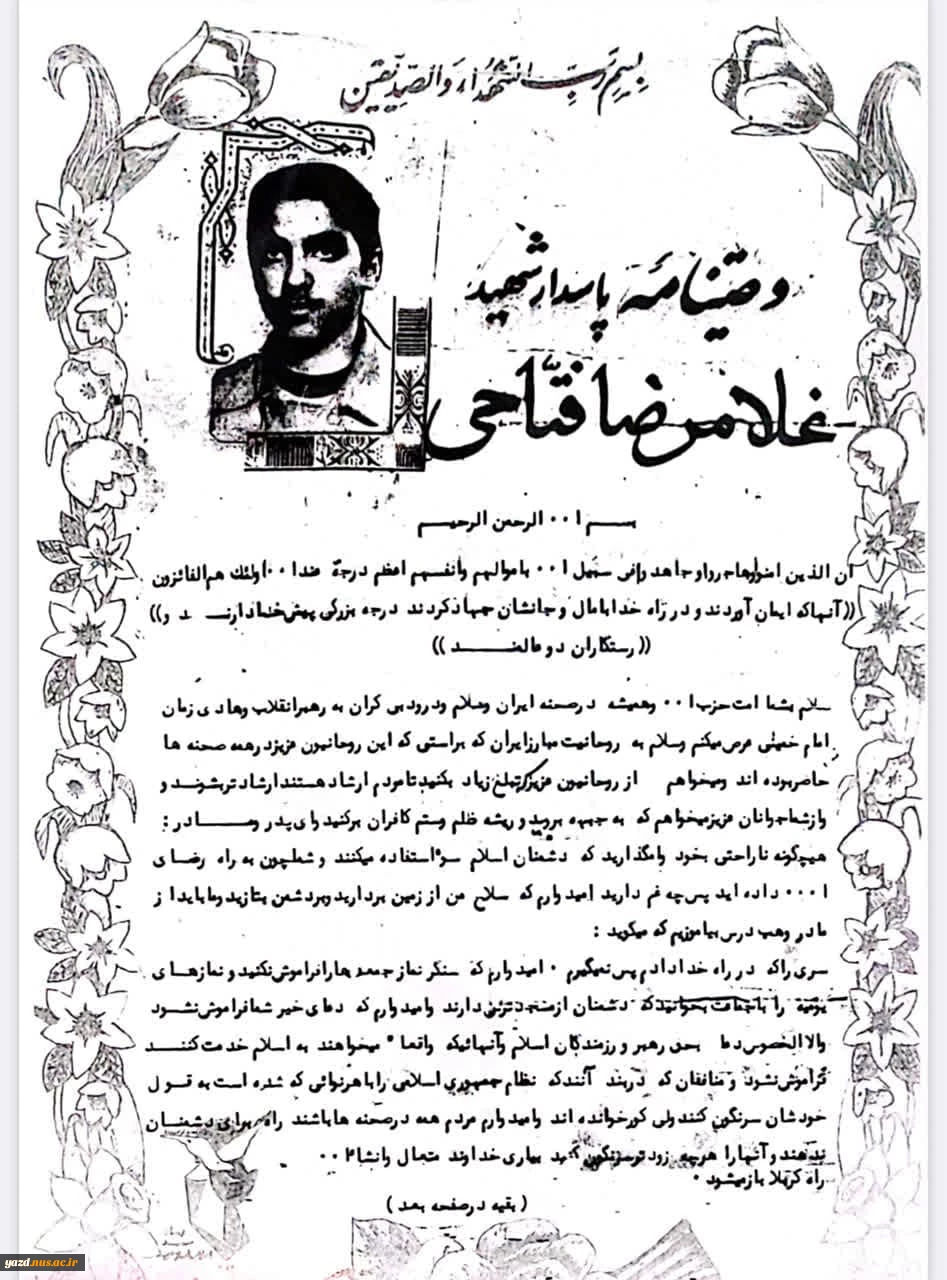 بِسمِ رَبِّ الشُّهَداءِ وَالصِّدِّیقین
وصیّتنامهٔ پاسدار شهید
غلامرضا فتّاحی
بسم ا۰۰ الرحمن الرحیم
ان الذین امنوا وهاجروا و جاهدوا فی سبیل ا۰۰ باموالهم وأنفسهم اعظم درجة عندا۰۰ اولئك هم الفائزون
((آنهاکه ایمان آوردند و در راه خدا بامال و جانشان جهاد کردند درجه بزرگی پیش خدا دارند و))
((رستکاران دوعالمند))
سلام بشما امت حزب ا۰۰ وهمیشه درصحنه ایران وسلام ودرود بی کران به رهبرانقلاب وهادی زمان
امام خمینی عرض میکنم وسلام به روحانیت مبارزایران که براستی که این روحانیون عزیزدرهمه صحنه ها
حاضربوده اند ومیخواهم از روحانیون عزیزکه تبلیغ زیاد بکنید تامردم ارشاد هستند ارشاد ترشوند و
وازشماجوانان عزیزمیخواهم که به جبهه بروید و ریشه ظلم وستم کافران برکنید وای پدر ومادر :
هیچگونه ناراحتی بخود وامگذارید که دشمنان اسلام سوٴاستفاده میکنند و شماچون به راه رضای
ا۰۰۰ داده اید پس چه غم دارید امیدوارم که سلاح من از زمین بردارید وبردشمن بتازید ومابایداز
مادر وهب درس بیاموزیم که میگوید :
سری راکه در راه خدا دادم پس نمیگیرم ۰ امیدوارم که سنگر نماز جمعه هارافراموش نکنید و نمازهای
یومیه را باجماعت بخوانید که دشمنان ازمسجد ترس دارند وامیدوارم که دعای خیر شمافراموش نشود
والاالخصوص دعا بحق رهبر و رزمندگان اسلام وآنهائیکه واقعا" میخواهند به اسلام خدمت کنند
فراموش نشود و منافقان که دربند آنندکه نظام جمهوری اسلامی را باهرنوائی که شده است به قول
خودشان سرنگون کنند ولی کورخوانده اند وامیدوارم مردم همه درصحنه هاباشند راه برای دشمنان
ندهند و آنهارا هرچه زود ترسرنگون کنید بیاری خداوند متعال وانشاا۰۰
راه کربلا بازمیشود ۰
(بقیه درصفحه بعد)
yazd.nus.ac.ir